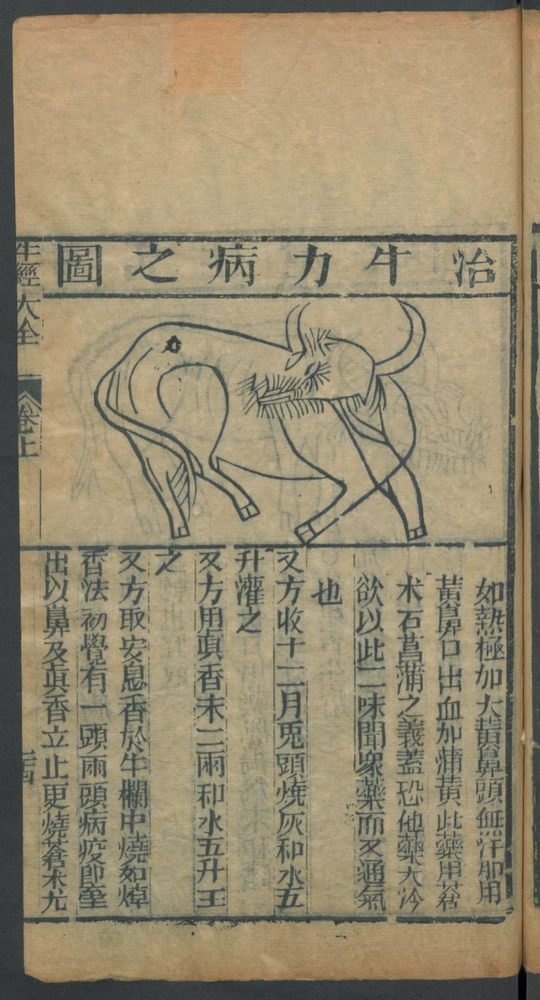 治牛力病之圖
如熱極加大黃鼻頭無汗加用
黃鼻口出血加蒲黃此藥用蒼
术石菖蒲之義蓋恐他藥大冷
欲以此二味開衆藥而又通氣
也
又方收十二月兎頭燒灰和水五
升灌之
又方用真香末二兩和水五升王
之
又方取安息香於牛欄中燒如焯
香法初覺有一頭兩頭病疫即牽
出以鼻及真香立止更燒蒼术尤
牛經大全
卷上